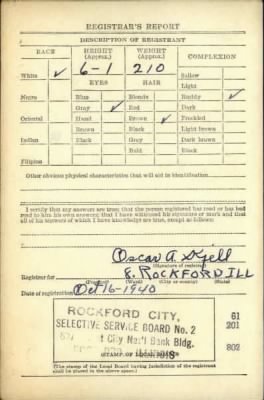 REGISTRAR'S REPORT
DESCRIPTION OF REGISTRANT
RACE HEIGHT (Approx.) WEIGHT (Approx.) COMPLEXION
White ✓ 6-1 210 Sallow
EYES HAIR Light
Negro Blue Blonde Ruddy ✓
Gray ✓ Red Dark
Oriental Hazel Brown ✓ Freckled
Brown Black Light brown
Indian Black Gray Dark brown
Bald Black
Filipino
Other obvious physical characteristics that will aid in identification
I certify that my answers are true; that the person registered has read or has had
read to him his own answers; that I have witnessed his signature or mark and that
all of his answers of which I have knowledge are true, except as follows:
Oscar A
(Signature of registrar)
Registrar for ROCKFORD ILL
(Precinct) (Ward) (City or county) (State)
Date of registration Oct 16-1940
ROCKFORD CITY, 61
SELECTIVE SERVICE BOARD No. 2 201
City Nat'l Bank Bldg.
802
(STAMP OF LOCAL BOARD)
(The stamp of the Local Board having jurisdiction of the registrant
shall be placed in the above space.)